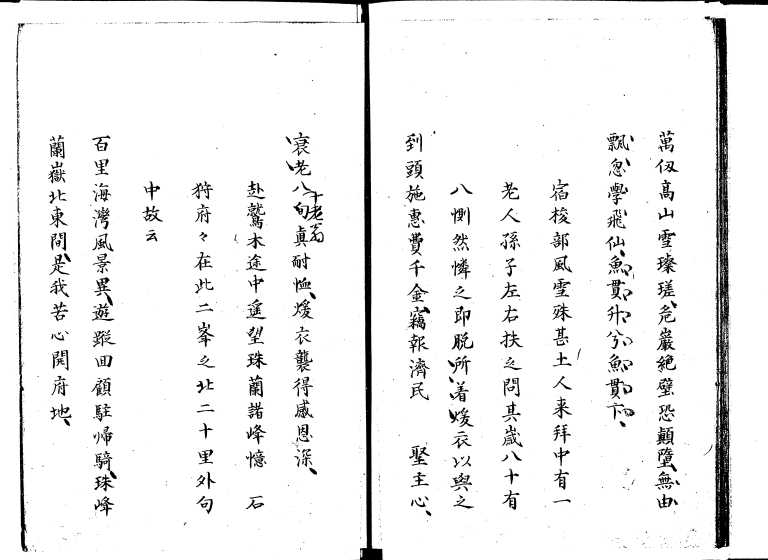 萬仭髙山雪璨瑳危巖絶壁恐顛墮無由
飄忽學飛仙魚貫升兮魚貫下
宿梭部風雪殊甚土人来拜中有一
老人孫子左右扶之問其歳八十有
八惻然憐之即脱所着煖衣以與之
到頭施惠費千金竊報濟民 聖主心
衰老八旬真耐恤煖衣襲得感恩深
十老翁
赴鷲木途中遙望珠蘭諸峰憶 石
狩府々在此二峯之北二十里外句
中故云
百里海灣風景異遊蹤回顧駐帰騎珠峰
蘭嶽北東間是我苦心開府地